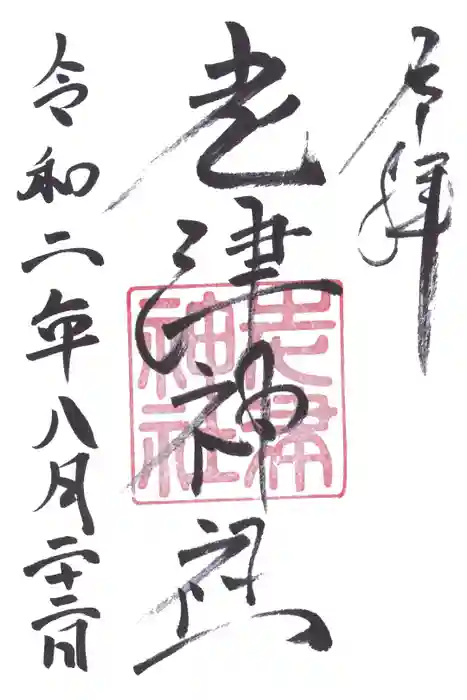 奉拝
老津神社
令和二年八月二十三日